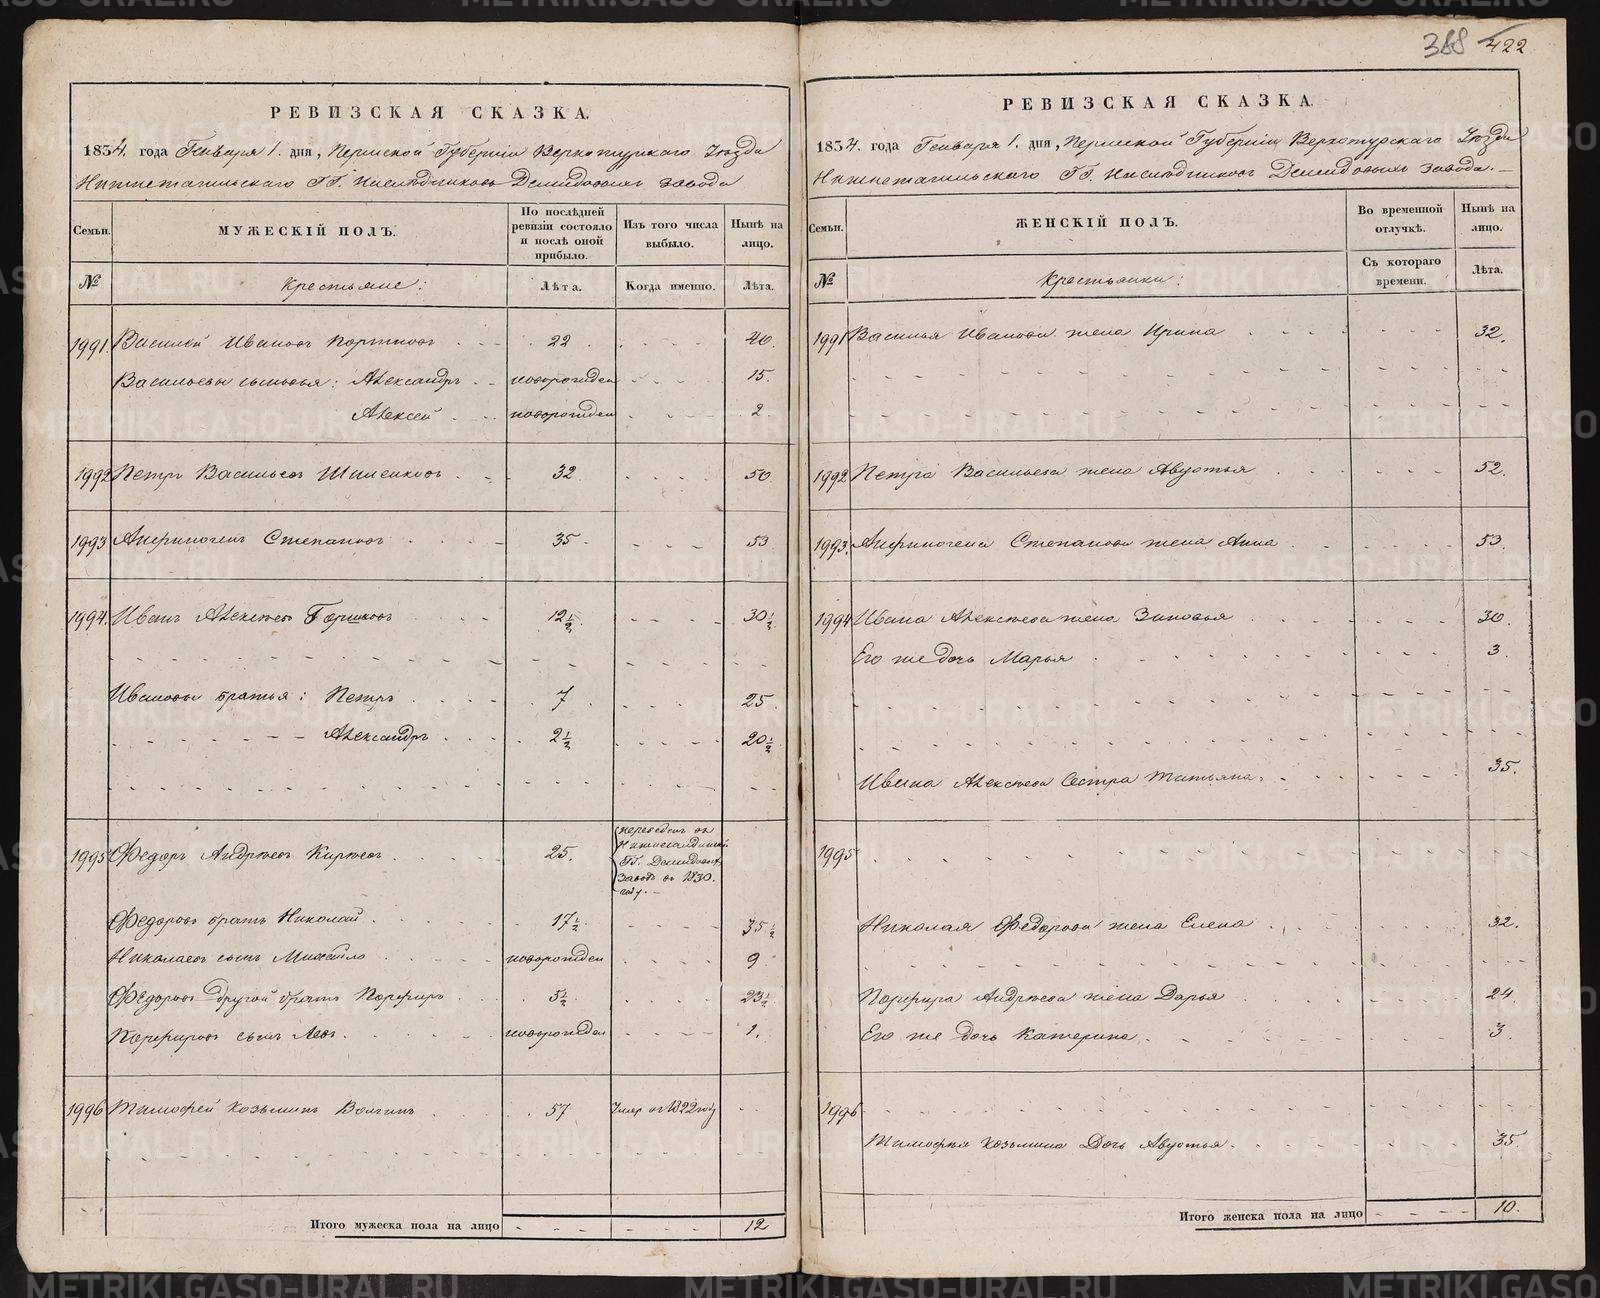 388 422
РЕВИЗСКАЯ СКАЗКА.
1834. года Генваря 1. дня, Пермской Губерніи Верхотурскаго Уѣзда
Нижнетагильскаго ГГ. Наслѣдниковъ Демидовыхъ завода
Семьи.
МУЖЕСКІЙ ПОЛЪ.
По послѣдней ревизіи состояло и послѣ оной прибыло.
Изъ того числа выбыло.
Нынѣ на лицо.
№
Крестьяне:
Лѣта.
Когда именно.
Лѣта.
1991 Василей Ивановъ 22 46.
Васильевы сыновья: Александръ новорожден 15.
Алексей новорожден 2
1992 Петръ Васильевъ 32 50
1993 Афиногенъ Степановъ 35 53
1994. Иванъ Алексѣевъ Горшковъ 12½ 30½
Ивановы братья: Петръ 7 25
Александръ 2½ 20½
1995 Федоръ Андрѣевъ 25. переведенъ въ
Нижнесалдинской
ГГ. Демидовыхъ
Заводъ въ 1830.
году.
Федоровъ братъ Николай 17½ 35½
Николаевъ сынъ Михайло новорожден 9
Федоровъ другой братъ Порфиръ 5½ 23½
Порфировъ сынъ Левъ новорожден 1.
1996 Тимофей Козьминъ Волгинъ 57 Умер въ 1822 году
Итого мужеска пола на лицо 12
РЕВИЗСКАЯ СКАЗКА.
1834. года Генваря 1. дня, Пермской Губерніи Верхотурскаго Уѣзда
Нижнетагильскаго ГГ. Наслѣдниковъ Демидовыхъ завода.
Семьи.
ЖЕНСКІЙ ПОЛЪ.
Во временной отлучкѣ.
Нынѣ на лицо.
№
Крестьянки:
Съ котораго времени.
Лѣта.
1991 Василья Иванова жена Ирина 32.
1992 Петра Васильева жена Авдотья 52.
1993. Афиногена Степанова жена Анна 53.
1994 Ивана Алексѣева жена Зиновья 30.
Его же дочь Марья 3.
Ивана Алексѣева Сестра Татьяна 35.
1995
Николая Федорова жена Елена 32.
Порфира Андрѣева жена Дарья 24.
Его же дочь Катерина 3.
1996
Тимофея Козьмина Дочь Авдотья 35.
Итого женска пола на лицо 10.
METRIKI.GASO-URAL.RU